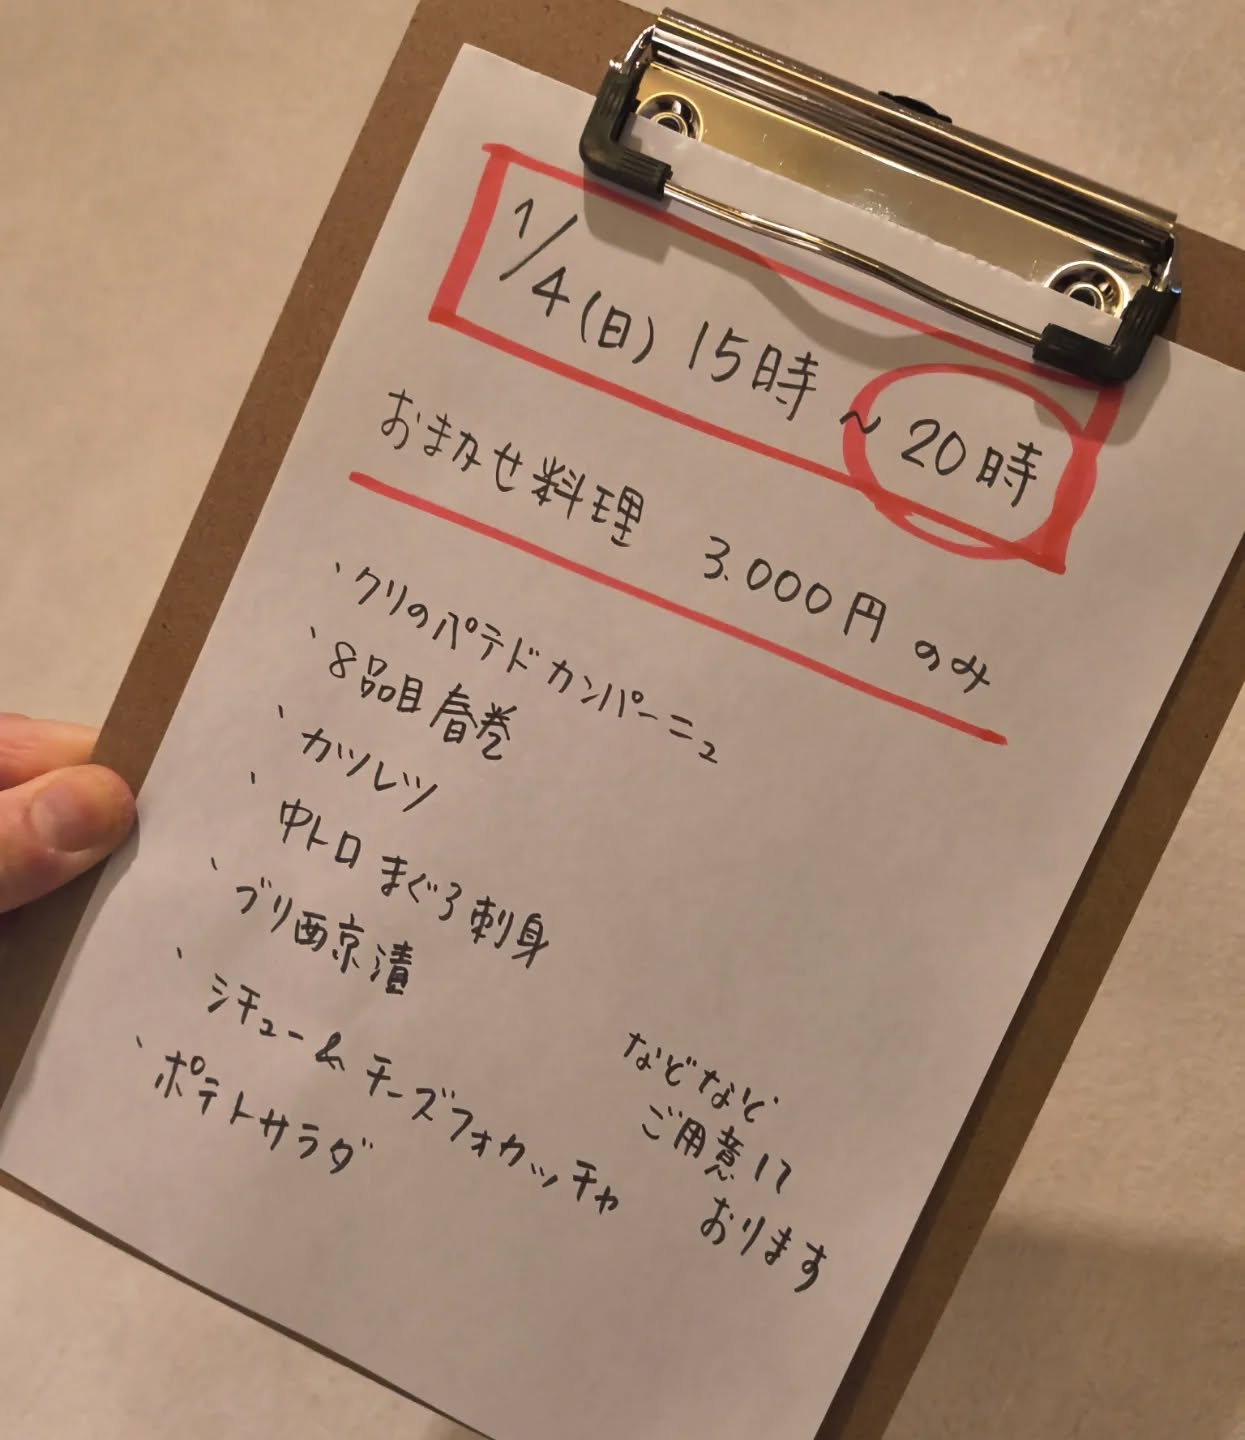 1/4(日) 15時~20時
おまかせ料理 3.000円のみ
、クリのパテドカンパーニュ
、8品目春巻
、カツレツ
、中トロまぐろ刺身
、ブリ西京漬
、シチュー&チーズフォカッチャ
、ポテトサラダ
などなど
ご用意して
おります